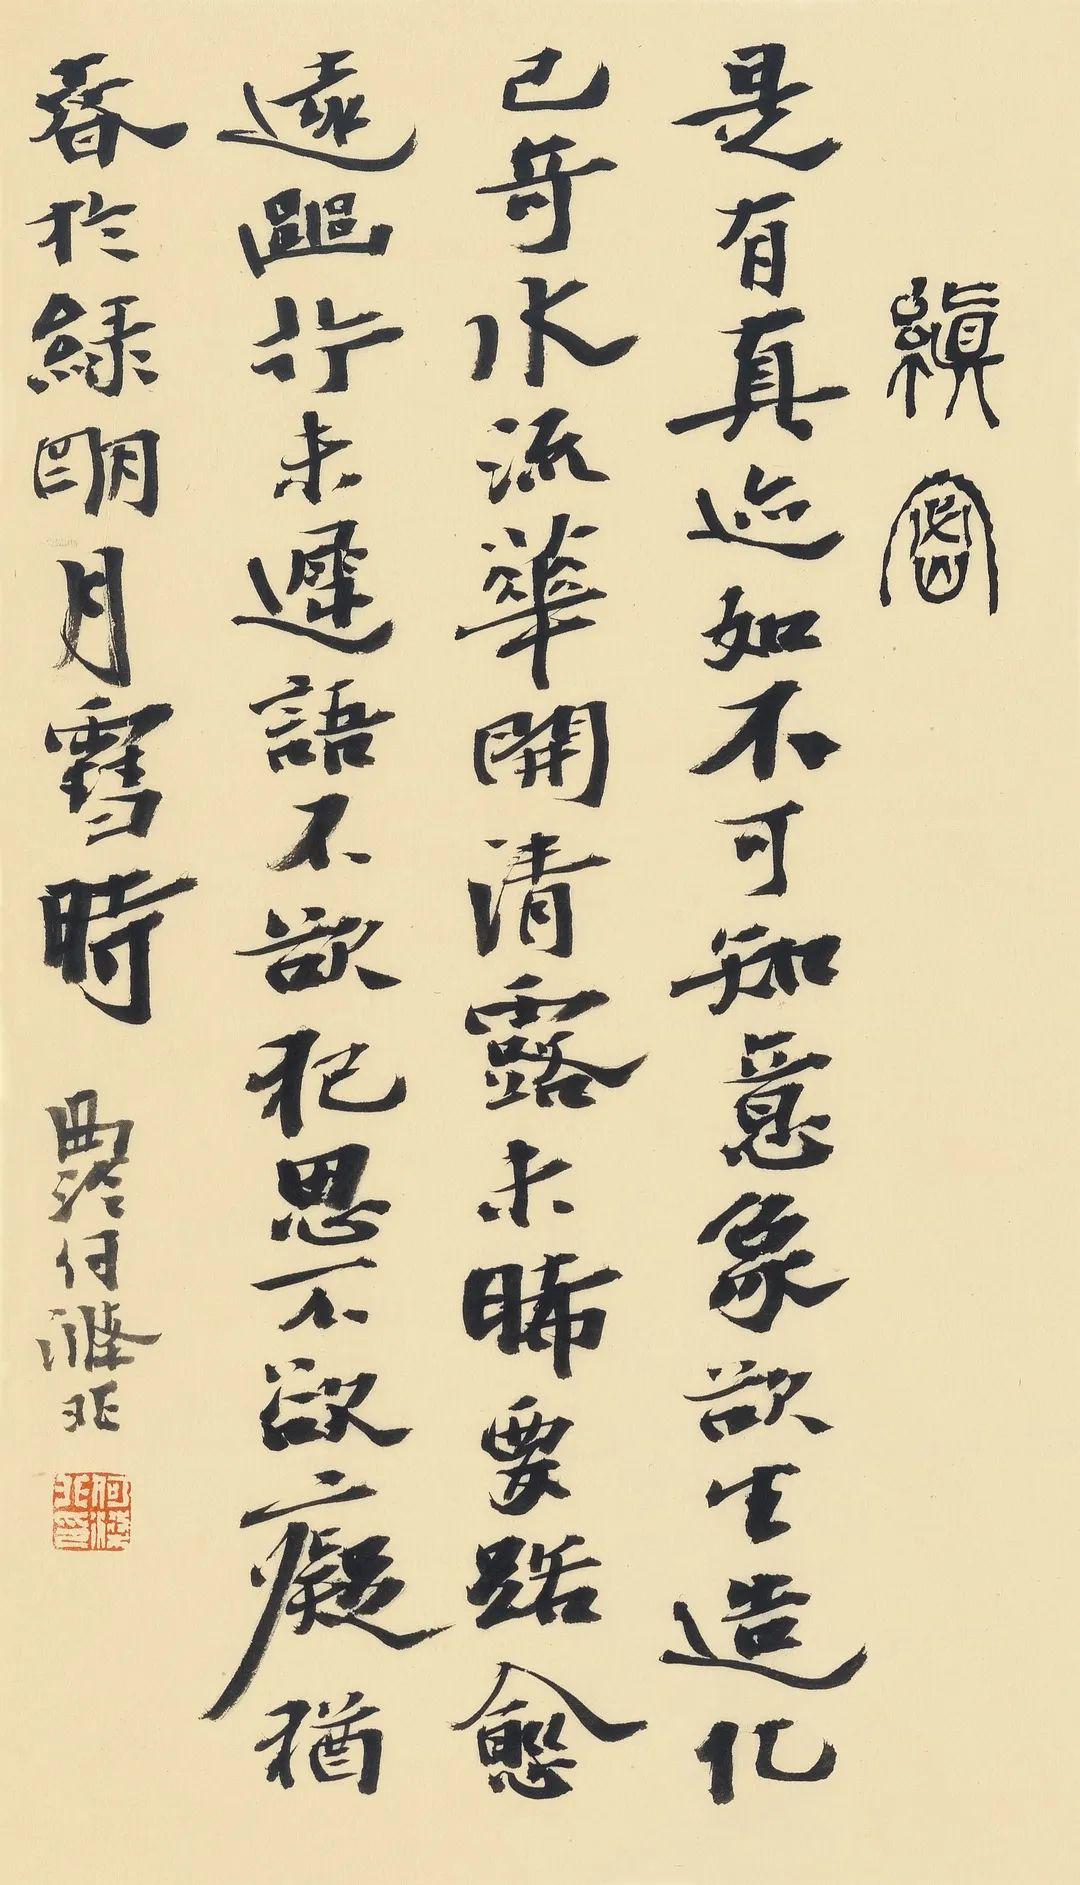 縝密
是有真迹如不可知意象欲生造化
已奇水流華開清露未晞要路愈
遠幽行未遲語不欲犯思不欲癡猶
春於綠明月雪時
西泠何滌非
何滌非印